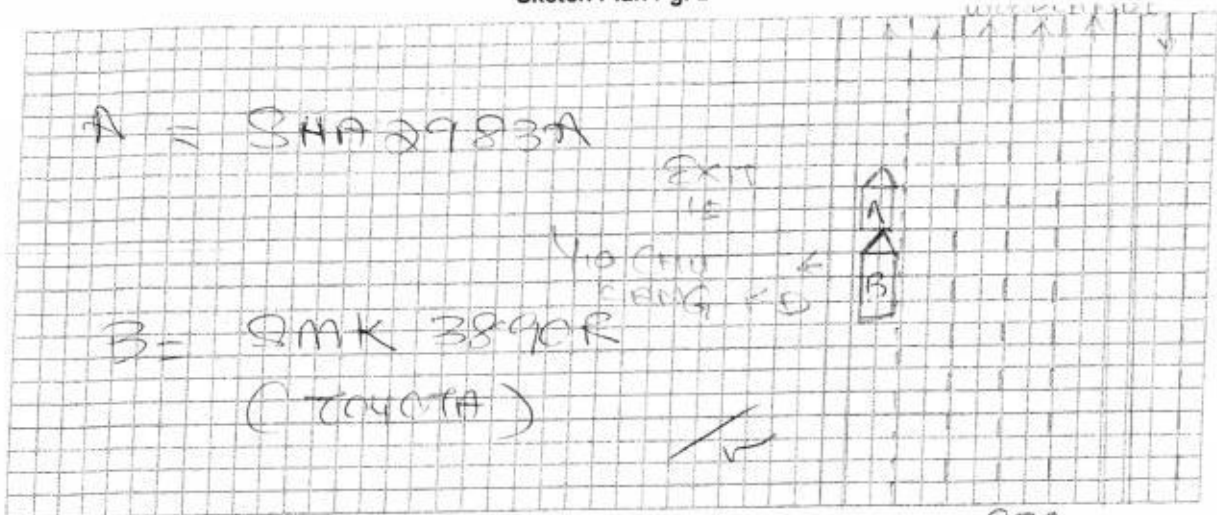 A = SHA2983A
EXIT
15
A
YIO CHU
KANG RD
B
B = SMK 3890R
(TOYOTA)